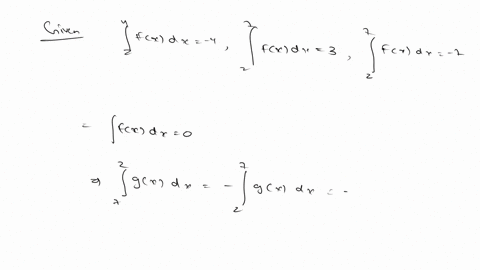 Given ∫₂⁴ f(x) dx = -4 , ∫₂⁷ f(x) dx = 3 , ∫₂⁷ f(x) dx = -2
= ∫ f(x) dx = 0
⇒ ∫₇² g(x) dx = - ∫₂⁷ g(x) dx = -